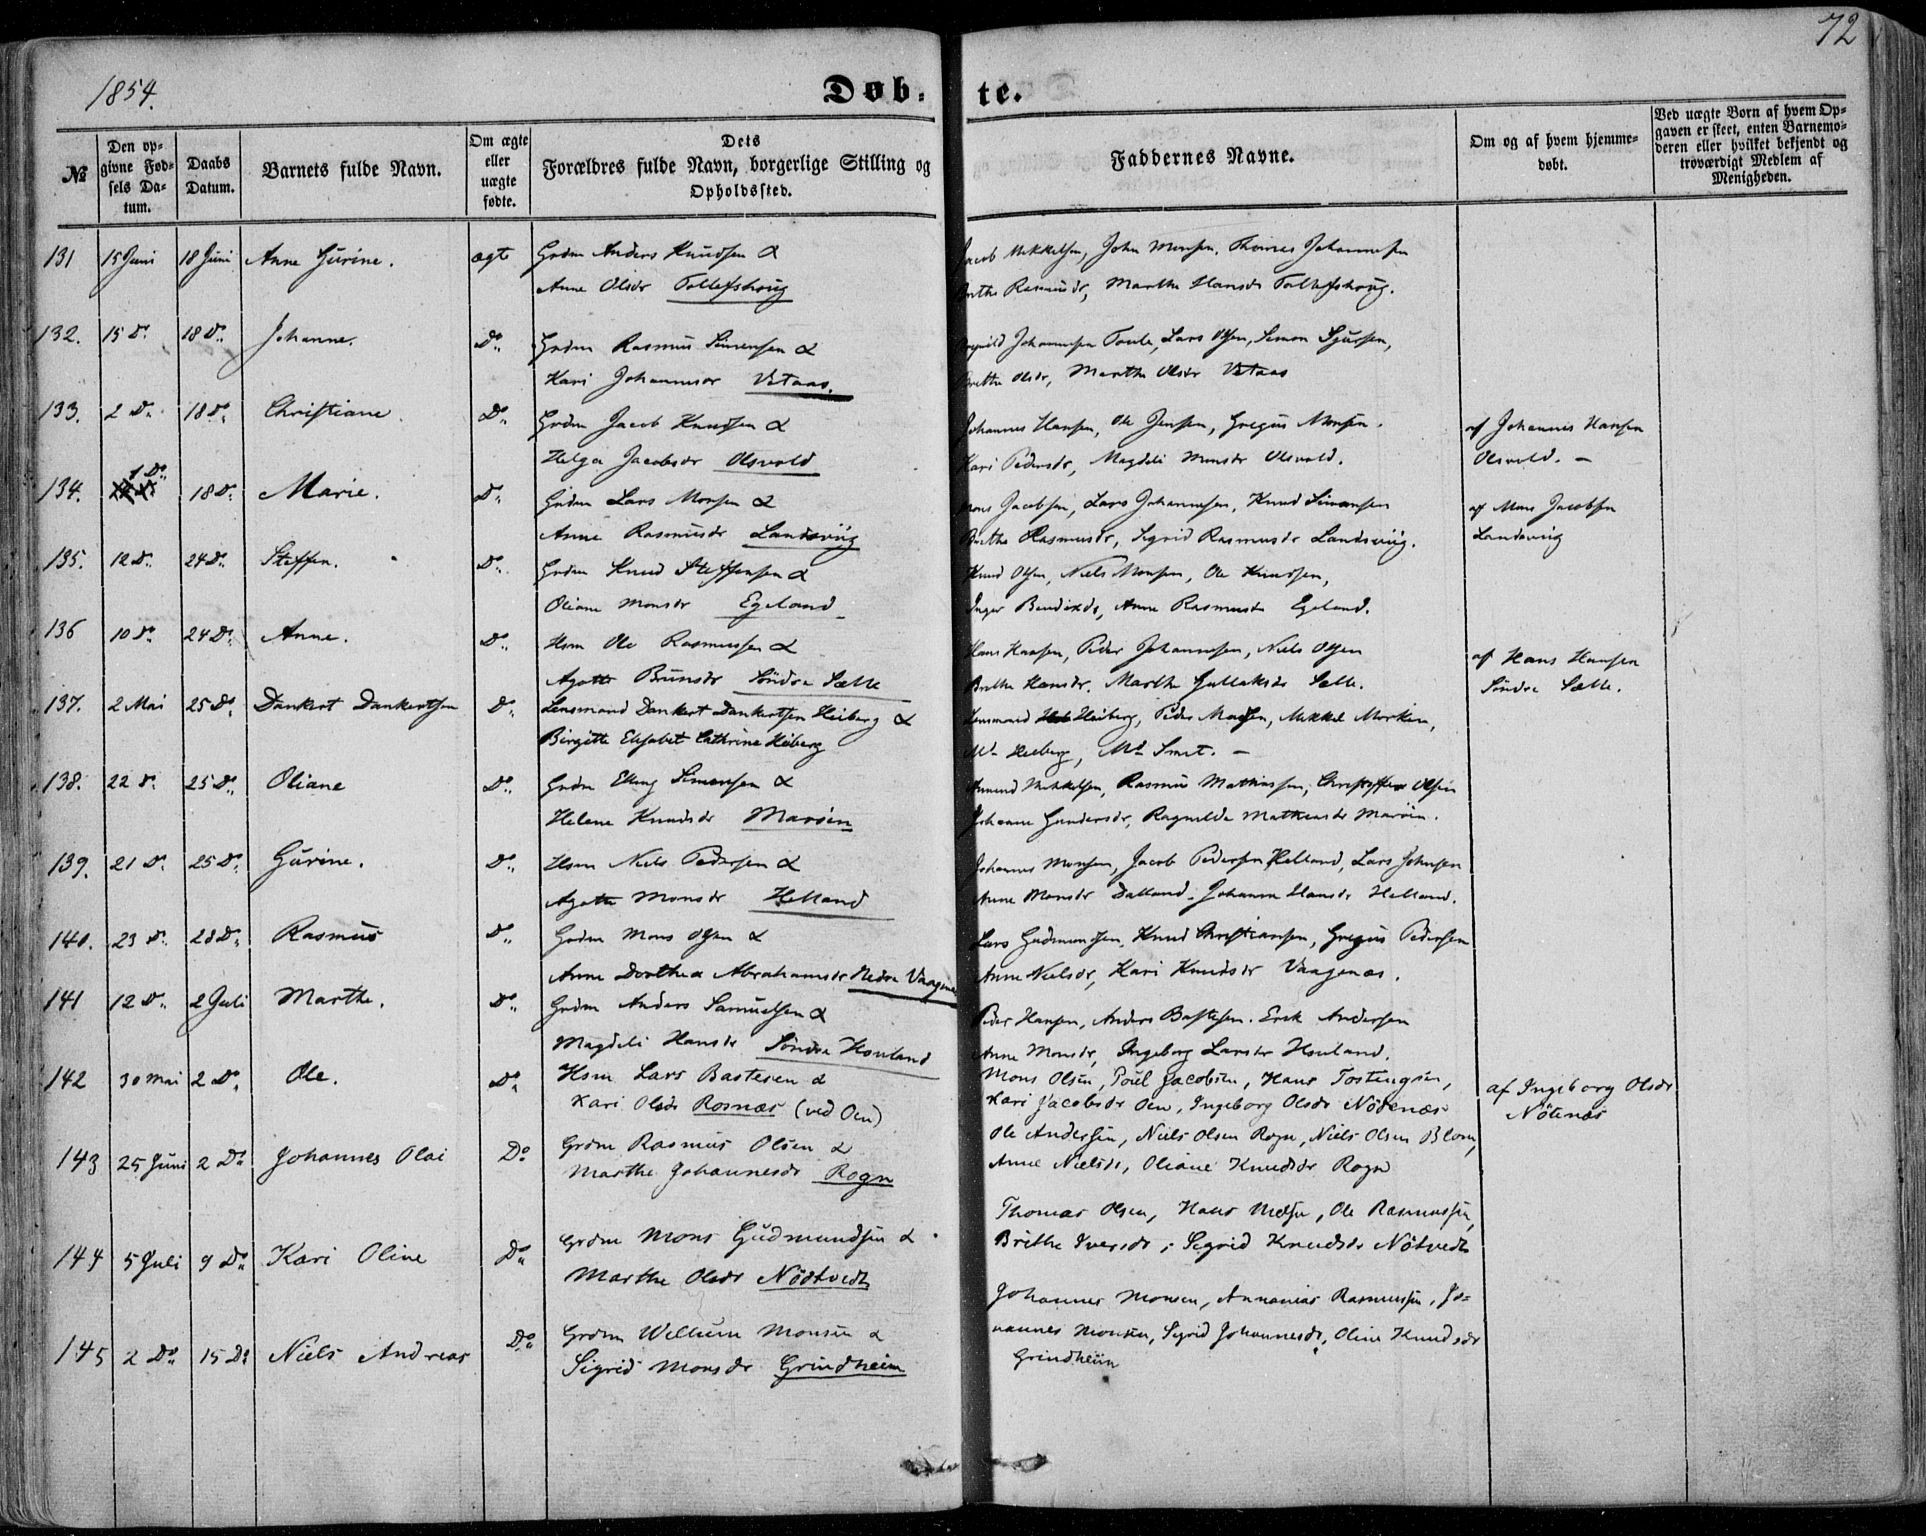 72
1854.
Døb- te.
№
Den opgivne Fødsels Datum.
Daabs Datum.
Barnets fulde Navn.
Om ægte eller uægte fødte.
Dets Forældres fulde Navn, borgerlige Stilling og Opholdssted.
Faddernes Navne.
Om og af hvem hjemmedøbt.
Ved uægte Børn af hvem Opgaven er skeet, enten Barnemoderen eller hvilket bekjendt og troværdigt Medlem af Menigheden.
131 15 Juni 18 Juni Anne Gurine. ægte Grdm Anders Knudsen &
Anne Olsdr Tollefshoug
Jacob Mikkelsen, John Monsen, Thomes Johannesen
Brithe Rasmusdr, Marthe Hansdr Tollefshoug.
132. 15 Do 18 Do Johanne. Do Grdm Rasmus Simensen &
Kari Johannesdr Vetaas.
Johannesen Lars Olsen, Simon Sjursen,
Brithe Olsdr, Marthe Olsdr Vetaas
133. 2 Do 18 Do Christiane. Do Grdm Jacob Knudsen &
Helga Jacobsdr Olsvold
Johannes Hansen, Ole Jensen, Gregus Monsen.
Kari Pedersdr, Magdeli Monsdr Olsvold.
af Johannes Hansen
Olsvold. –
134. 1 Do 18 Do Marie. Do Grdm Lars Monsen &
Anne Rasmusdr Landsviig
Mons Jacobsen, Lars Johannesen, Knud Simensen
Brithe Rasmusdr, Sigrid Rasmusdr Landsviig.
af Mons Jacobsen
Landsviig
135. 12 Do 24 Do Steffen. Do Grdm Knud Steffensen &
Oliane Monsdr Egeland
Knud Olsen, Niels Monsen, Ole Knudsen,
Inger Bendixdr, Anne Rasmusdr Egeland.
136 10 Do 24 Do Anne. Do Hsm Ole Rasmussen &
Agathe Brunsdr Söndre Sætte
Hans Hansen, Peder Johannesen, Niels Olsen
Brithe Hansdr, Marthe Gullaksdr Sætte.
af Hans Hansen
Söndre Sætte.
137. 2 Mai 25 Do Dankert Dankertsen Do Lensmand Dankert Dankertsen Heiberg &
Birgitte Elisabet Cathrine Heiberg
Lensmand Heiberg, Peder Madsen, Mikkel Morken,
Md Heiberg, Md Smit. –
138. 22 Do 25 Do Oliane Do Grdm Elling Simensen &
Helene Knudsdr Maröen
Amund Mikkelsen, Rasmus Mathiassen, Christoffer Olsen
Johanne Gundersdr, Ragnilde Mathiasdr Maröen.
139. 21 Do 25 Do Gurine. Do Hsm Niels Pedersen &
Agathe Monsdr Helland
Johannes Monsen, Jacob Pedersen Helland, Lars Johnsen
Anne Monsdr Dalland. Johanne Hansdr Helland.
140. 23 Do 28 Do Rasmus Do Grdm Mons Olsen &
Anne Dorthea Abrahamsdr Nedre Vaagenes
Lars Gudmundsen, Knud Christiansen, Gregus Pedersen
Anne Nielsdr, Kari Knudsdr Vaagenæs.
141 12 Do 2 Juli Marthe. Do Grdm Anders Samuelsen &
Magdeli Hansdr Söndre Houland
Peder Hansen, Anders Bastesen. Erik Andersen
Anne Monsdr, Ingeborg Larsdr Houland.
142 30 Mai 2 Do Ole. Do Hsm Lars Bastesen &
Kari Olsdr Rosnæs (ved Oen)
Mons Olsen, Poul Jacobsen, Hans Tostengsen,
Kari Jacobsdr Oen, Ingeborg Olsdr Nötenæs
af Ingeborg Olsdr
Nötenæs
143 25 Juni 2 Do Johannes Olai Do Grdm Rasmus Olsen &
Marthe Johannesdr Rogn
Ole Andersen, Niels Olsen Rogn, Niels Olsen Blom,
Anne Nielsdr, Oliane Knudsdr Rogn
144 5 Juli 9 Do Kari Oline Do Grdm Mons Gudmundsen &
Marthe Olsdr Nödtvedt
Thomas Olsen, Hans Nielsen, Ole Rasmussen,
Brithe Iversdr, Sigrid Knudsdr Nötvedt
145 2 Do 15 Do Niels Andreas Do Grdm Wellum Monsen &
Sigrid Monsdr Grindheim
Johannes Monsen, Annanias Rasmussen, Jo-
hannes Monsen, Sigrid Johannesdr, Oline Knudsdr
Grindheim